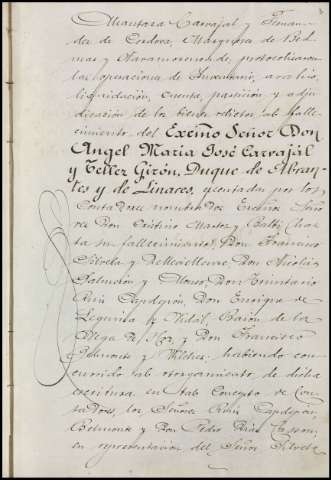 Alcantara Carvajal y Fernan-
dez de Cordova, Marquesa de Bed-
mar y Navamorcuende protocolizacion
las operaciones de Inventario, avaluo,
liquidación, cuenta, particion y adju-
dicación de los bienes relictos al falle-
cimiento del Excmo Señor Don
Angel María José Carvajal
y Tellez Girón, Duque de Abran-
tes y de Linares, ejecutadas por los
Contadores nombrados Excmos Seño-
res Don Cristino Martos y Balbi, hasta
su fallecimiento, Don Francisco
Silvela y Delleville­use, Don Nicolás
Salmerón y Alonso, Don Trinitario
Ruiz Capdepón, Don Enrique de
Leguina y Vidal, Barón de la
Vega de Hoz, y Don Francisco
Belmonte y Vilches, habiendo con-
currido al otorgamiento de dicha
escritura en tal concepto de Conta-
dores, los Señores Ruiz Capdepón,
Belmonte y Don Pedro
en representación del Señor Silvela